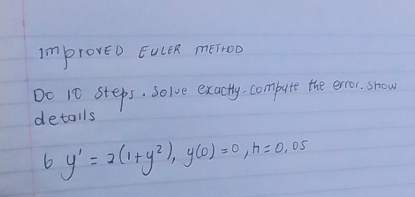 ImpROVED EULER METHOD
Do 10 steps. Solve exactly. compute the error. show
details
6 y' = 2(1+y²), y(0) = 0, h = 0,05